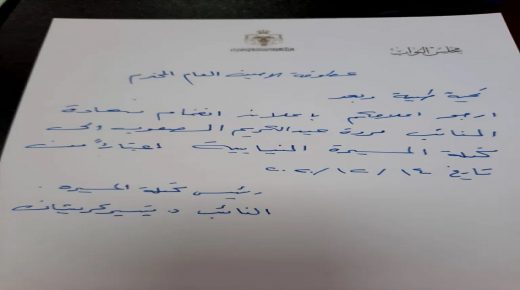 مجلس النواب
عطوفة الامين العام المحترم
تحية طيبة وبعد
ارجو اعلامكم باعلان انضمام سعادة
النائب مروة عبدالكريم الصعوب الى
كتلة المسيرة النيابية اعتباراً من
تاريخ ١٤/١٢/٢٠٢٠
رئيس كتلة المسيرة
النائب د تيسير كريشان